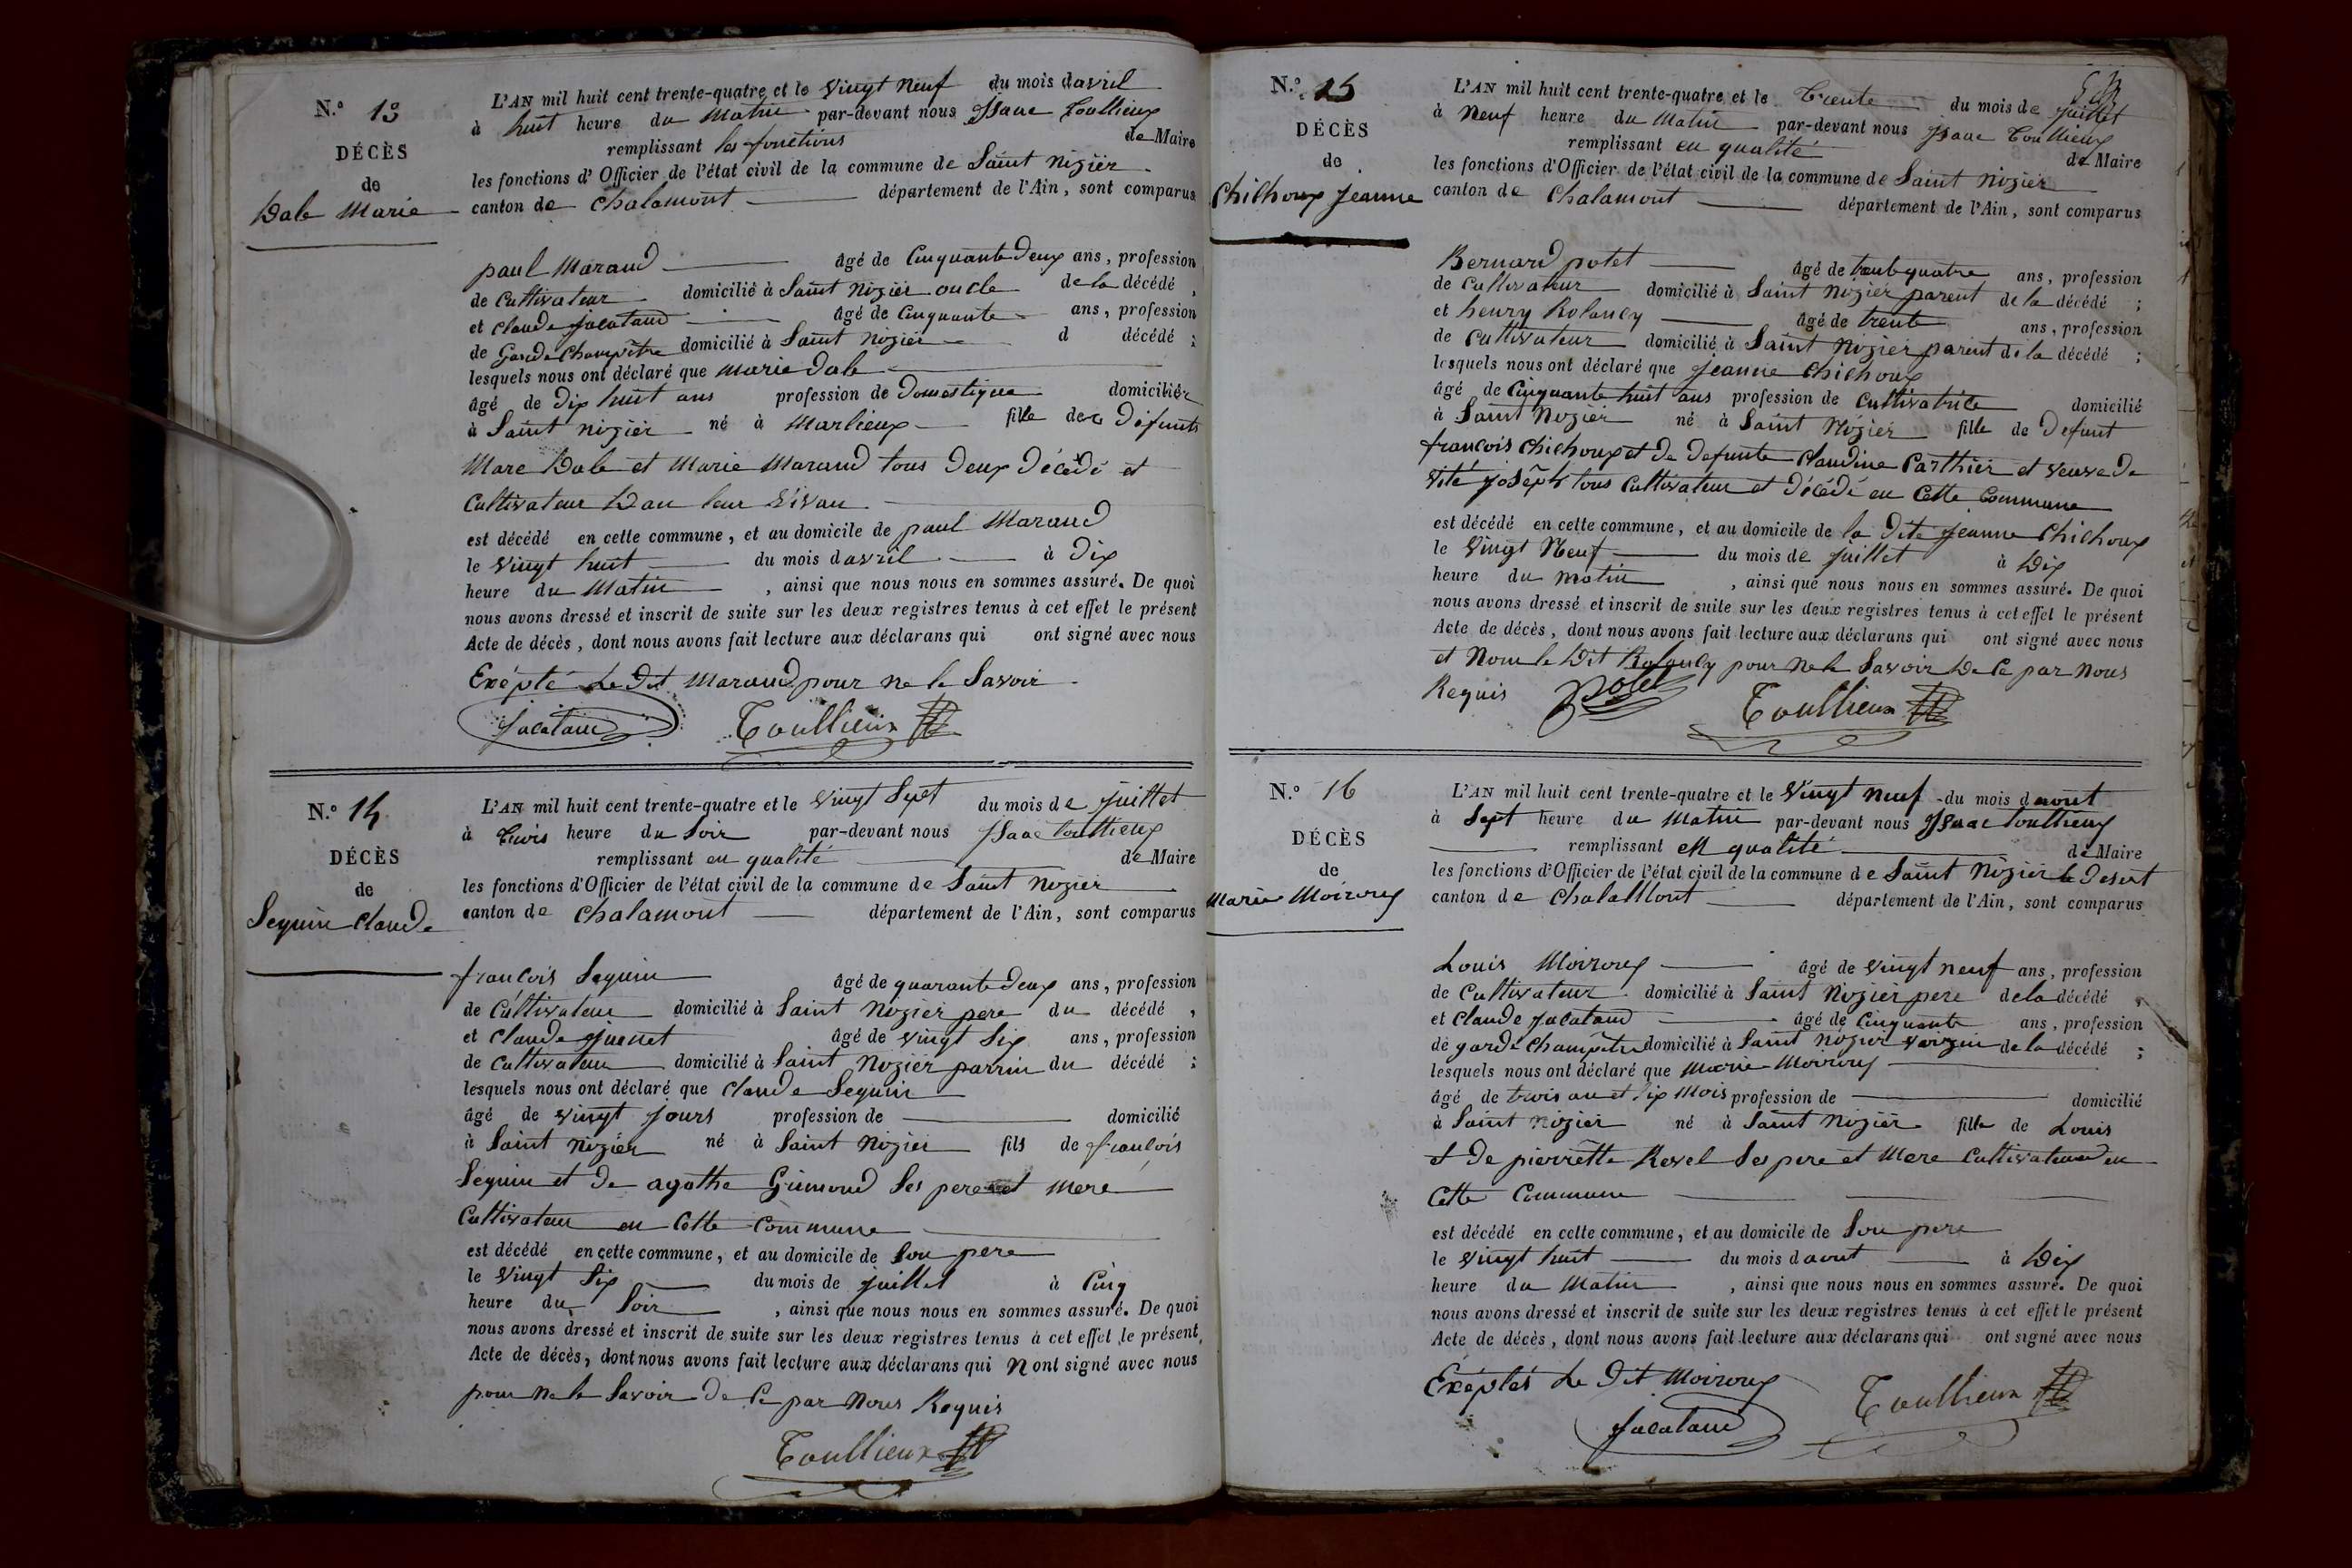 N.º 13
DÉCÈS
de
Dale Marie
L'AN mil huit cent trente-quatre et le vingt neuf du mois d avril
à huit heure du Matin par-devant nous Isaac Toullieux
remplissant les fonctions de Maire
les fonctions d'Officier de l'état civil de la commune de Saint nizier
canton de Chalamont département de l'Ain, sont comparus
paul Maraud âgé de Cinquante deux ans, profession
de Cultivateur domicilié à Saint Nizier oncle de la décédé,
et Claude jacataud âgé de Cinquante ans, profession
de Garde Champêtre domicilié à Saint Nizier d décédé;
lesquels nous ont déclaré que Marie Dale
âgé de dix huit ans profession de Domestique domicilié
à Saint nizier né à Marlieux fille de Défunts
Marc Dale et Marie Maraud tous deux décédé et
Cultivateur Dan leur vivan
est décédé en cette commune, et au domicile de paul Maraud
le vingt huit du mois d avril à Dix
heure du Matin, ainsi que nous nous en sommes assuré. De quoi
nous avons dressé et inscrit de suite sur les deux registres tenus à cet effet le présent
Acte de décès, dont nous avons fait lecture aux déclarans qui ont signé avec nous
Exépté Le Dit Maraud pour ne le Savoir
Jacataud Toullieux
N.º 14
DÉCÈS
de
Seguin Claude
L'AN mil huit cent trente-quatre et le vingt Sept du mois de juillet
à trois heure du Soir par-devant nous Isaac Toullieux
remplissant en qualité de Maire
les fonctions d'Officier de l'état civil de la commune de Saint Nizier
canton de Chalamont département de l'Ain, sont comparus
francois Seguin âgé de quarante deux ans, profession
de Cultivateur domicilié à Saint Nizier pere du décédé,
et Claude âgé de vingt Six ans, profession
de Cultivateur domicilié à Saint Nizier parrin du décédé;
lesquels nous ont déclaré que Claude Seguin
âgé de vingt jours profession de domicilié
à Saint Nizier né à Saint Nizier fils de francois
Seguin et de agathe Guimond Ses pere et mere
Cultivateur en Cette Commune
est décédé en cette commune, et au domicile de Son pere
le vingt Six du mois de juillet à Cinq
heure du Soir, ainsi que nous nous en sommes assuré. De quoi
nous avons dressé et inscrit de suite sur les deux registres tenus à cet effet le présent,
Acte de décès, dont nous avons fait lecture aux déclarans qui N ont signé avec nous
pour Ne le Savoir de Ce par Nous Requis
Toullieux
N.º 15
DÉCÈS
de
Chichoux Jeanne
L'AN mil huit cent trente-quatre et le Trente du mois de Juillet
à Neuf heure du Matin par-devant nous Isaac Toullieux
remplissant en qualité de Maire
les fonctions d'Officier de l'état civil de la commune de Saint Nizier
canton de Chalamont département de l'Ain, sont comparus
Bernard potet âgé de trente quatre ans, profession
de Cultivateur domicilié à Saint Nizier parent de la décédé;
et henry Rolandy âgé de trente ans, profession
de Cultivateur domicilié à Saint Nizier parent de la décédé;
lesquels nous ont déclaré que Jeanne Chichoux
âgé de Cinquante huit ans profession de Cultivatrice domicilié
à Saint Nizier né à Saint Nizier fille de Defunt
francois Chichoux et de Defunte Claudine Carthier et veuve de
Vité Joseph tous Cultivateur et Décédé en Cette Commune
est décédé en cette commune, et au domicile de la Dite Jeanne Chichoux
le vingt Neuf du mois de juillet à Dix
heure du matin, ainsi que nous nous en sommes assuré. De quoi
nous avons dressé et inscrit de suite sur les deux registres tenus à cet effet le présent
Acte de décès, dont nous avons fait lecture aux déclarans qui ont signé avec nous
et Nom le Dit Rolandy pour Ne le Savoir De Ce par Nous
Requis potet Toullieux
N.º 16
DÉCÈS
de
Marie Moiroux
L'AN mil huit cent trente-quatre et le vingt neuf du mois d aout
à Sept heure du Matin par-devant nous Isaac Toullieux
remplissant en qualité de Maire
les fonctions d'Officier de l'état civil de la commune de Saint Nizier le Desert
canton de ChalaMont département de l'Ain, sont comparus
Louis Moiroux âgé de vingt neuf ans, profession
de Cultivateur domicilié à Saint Nizier pere de la décédé,
et Claude Jacataud âgé de Cinquante ans, profession
de garde champêtre domicilié à Saint Nizier voizin de la décédé;
lesquels nous ont déclaré que Marie Moiroux
âgé de trois an et Six Mois profession de domicilié
à Saint Nizier né à Saint Nizier fille de Louis
et De pierrette Revel Ses pere et Mere Cultivateur en
Cette Commune
est décédé en cette commune, et au domicile de Son pere
le vingt huit du mois d aout à Dix
heure du Matin, ainsi que nous nous en sommes assuré. De quoi
nous avons dressé et inscrit de suite sur les deux registres tenus à cet effet le présent
Acte de décès, dont nous avons fait lecture aux déclarans qui ont signé avec nous
Exéptés Le Dit Moiroux
Jacataud Toullieux